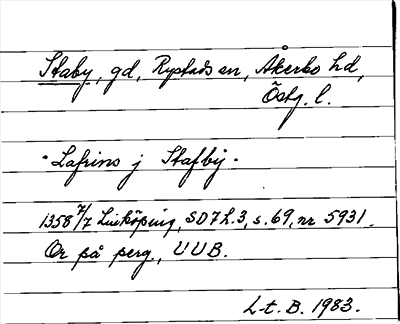 Staby, gd, Rystads sn, Åkerbo hd,
Östg. l.
"Lafrins j Stafby"
1358 7/7 Linköping, SD 7 h. 3, s. 69, nr 5931.
Or på perg., UUB.
L-t. B. 1983.